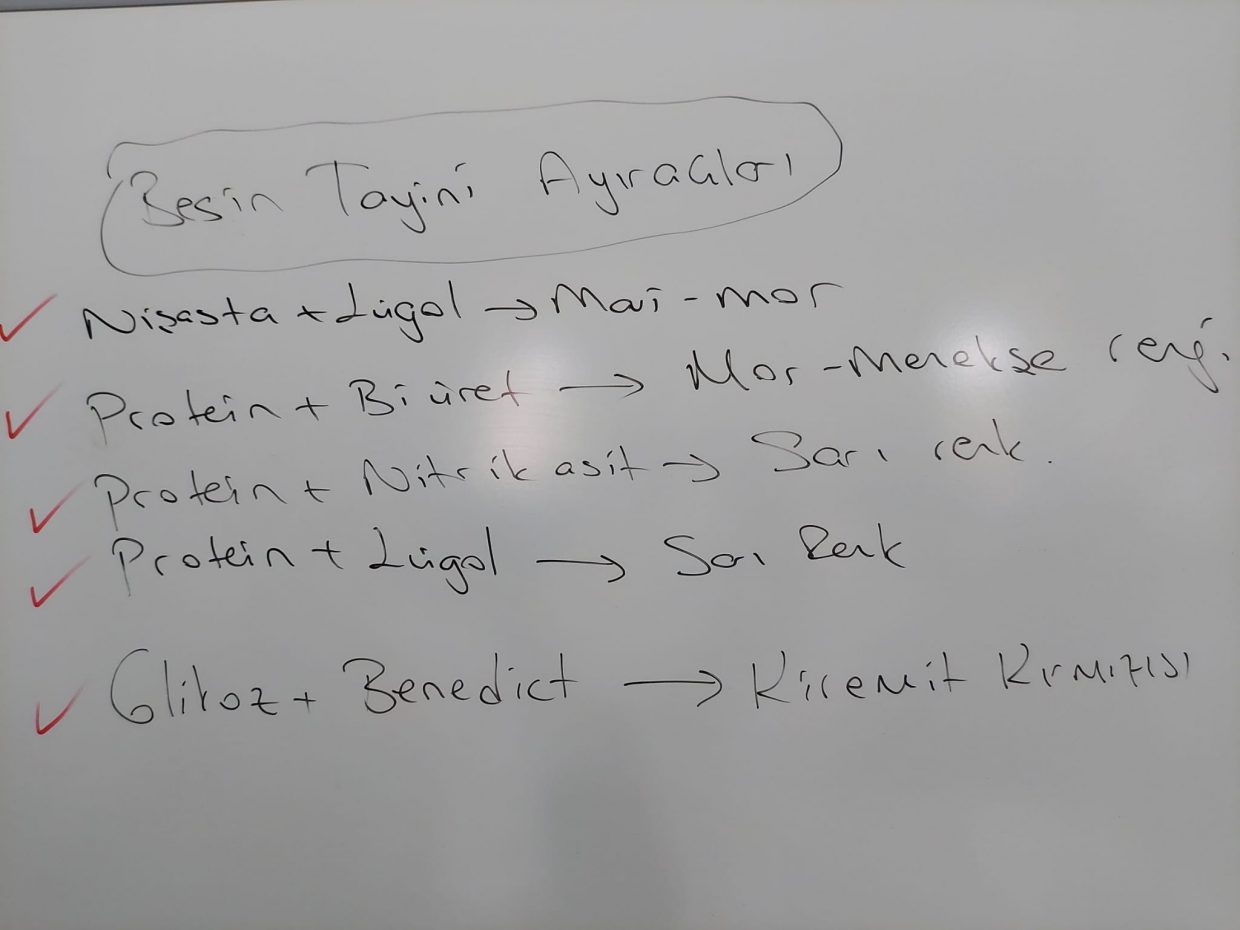 Besin Tayini Ayıraçları
Nişasta + Lügol → Mavi - mor
Protein + Biüret → Mor - Menekşe rengi.
Protein + Nitrik asit → Sarı renk.
Protein + Lügol → Sarı Renk
Glikoz + Benedict → Kiremit Kırmızısı